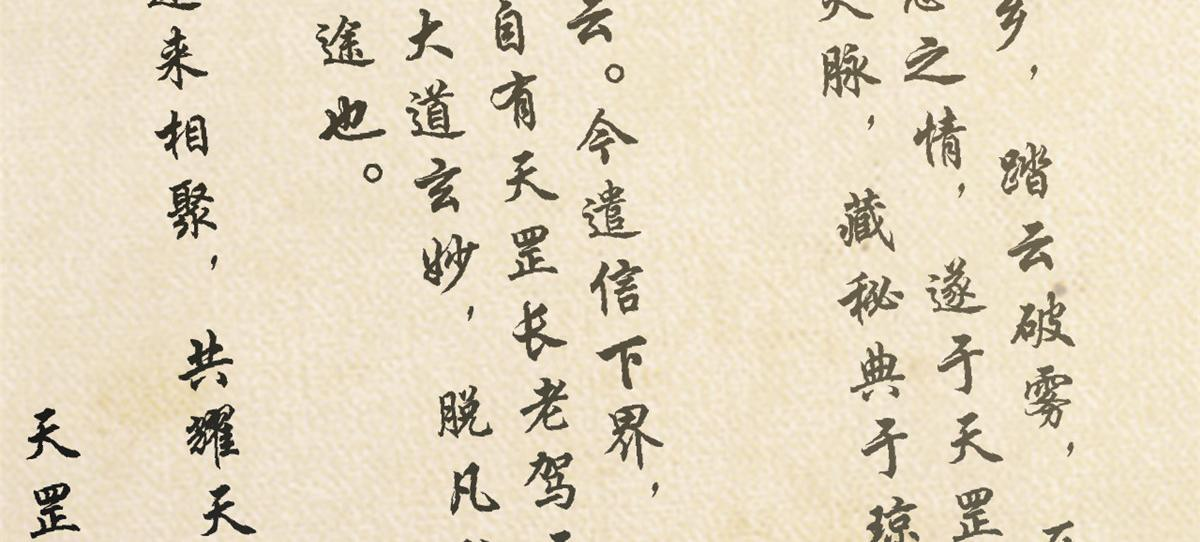 乡，踏云破雾，
之情，遂于天罡
脉，藏秘典于琼
云。今遣信下界，
自有天罡长老驾
大道玄妙，脱凡
途也。
来相聚，共耀天
天罡